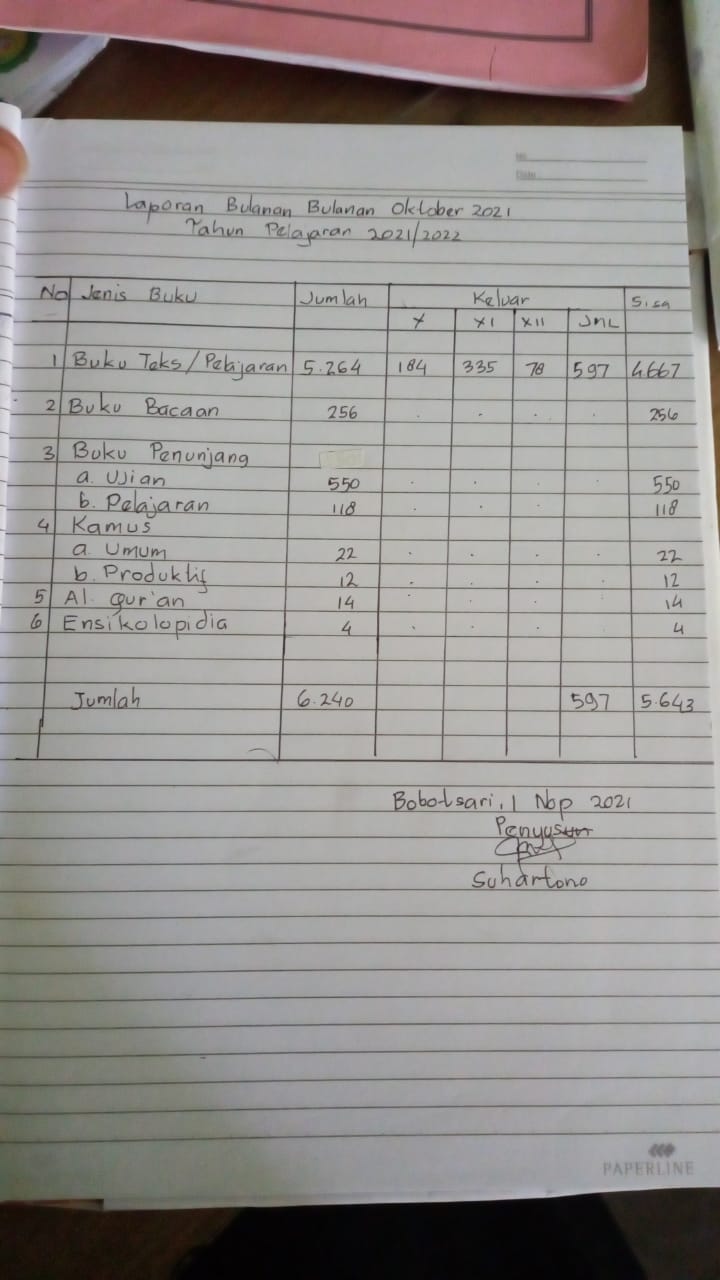 No
Date
Laporan Bulanan Bulanan Oktober 2021
Tahun Pelajaran 2021/2022
No Jenis Buku Jumlah Keluar Sisa
X XI XII JML
1 Buku Teks/Pelajaran 5.264 184 335 78 597 4667
2 Buku Bacaan 256 . . . . 256
3 Buku Penunjang
a. Ujian 550 . . . . 550
b. Pelajaran 118 . . . . 118
4 Kamus
a. Umum 22 . . . . 22
b. Produktif 12 . . . . 12
5 Al. Qur'an 14 . . . . 14
6 Ensikolopidia 4 . . . . 4
Jumlah 6.240 597 5.643
Bobotsari, 1 Nop 2021
Penyusun
Suhartono
PAPERLINE